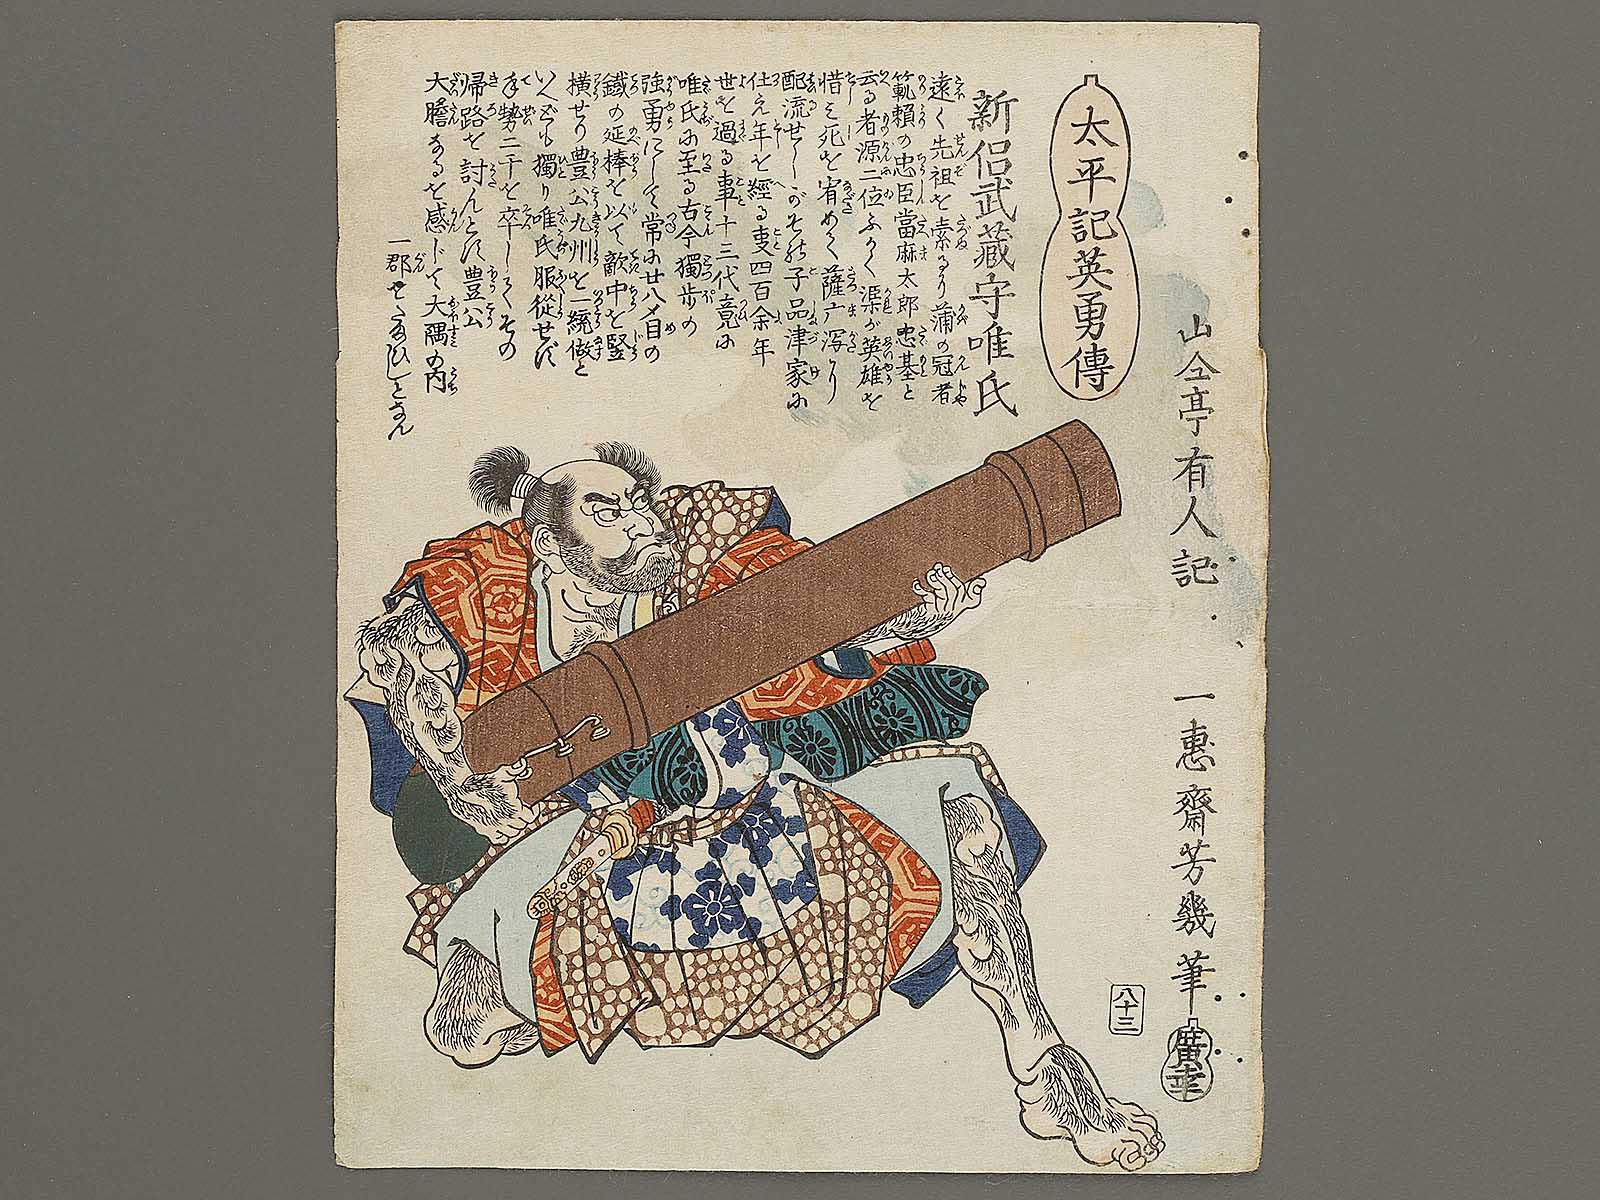 太平記英勇傳
山々亭有人記
一惠齋芳幾筆
廣幸
八十三
新侶武藏守唯氏
遠く先祖を索るより蒲の冠者
範頼の忠臣當麻太郎忠基と
云る者源二位ふかく渠が英雄を
惜み死を宥めて薩广潟より
配流せしがその子品津家に
仕え年を經る事四百余年
世を過る事十三代竟に
唯氏に至る古今獨歩の
強勇にして常に廿八〆目の
鐵の延棒を以て敵中を竪
横せり豊公九州を一統做と
いへども獨り唯氏服從せず
手勢二千を卒してその
帰路を討んとす豊公
大膽なるを感じて大隅の内
一郡をたまひしとなん